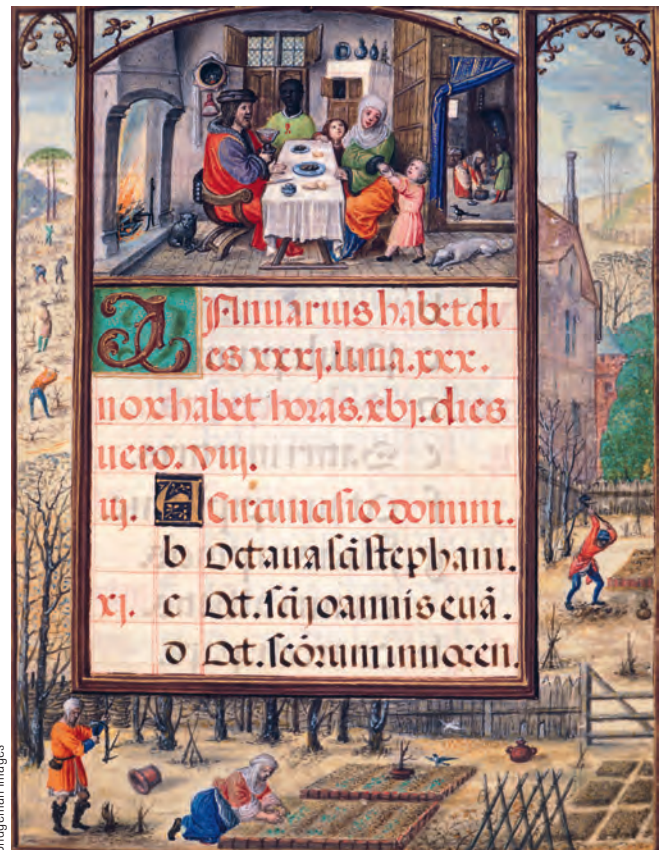 Januarius habet di
es xxxj. luna. xxx.
nox habet horas. xbj. dies
uero. viij.
iij. A Circuncisio domini.
b Octaua scī stephani.
xj. c Oct. scī joannis euā.
d Oct. scōrum innocen.
Bridgeman Images